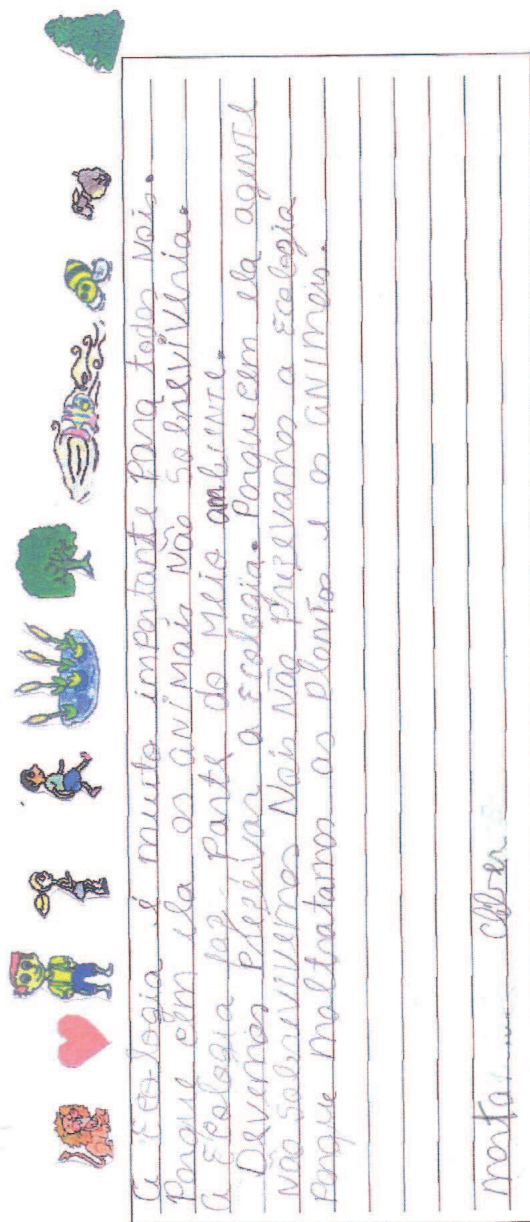 A Ecologia é muito importante Para todos Nois.
Porque cem ela os aNiMais Não SobreviVeria.
A Ecologia faz Parte do Meio ambiente.
Devemos Preservar a Ecologia. Porque cem ela agente
Não Sobrevivemos Nois Não Prezevamos a Ecologia
Porque maltratamos as Plantas e os aNiMeis.